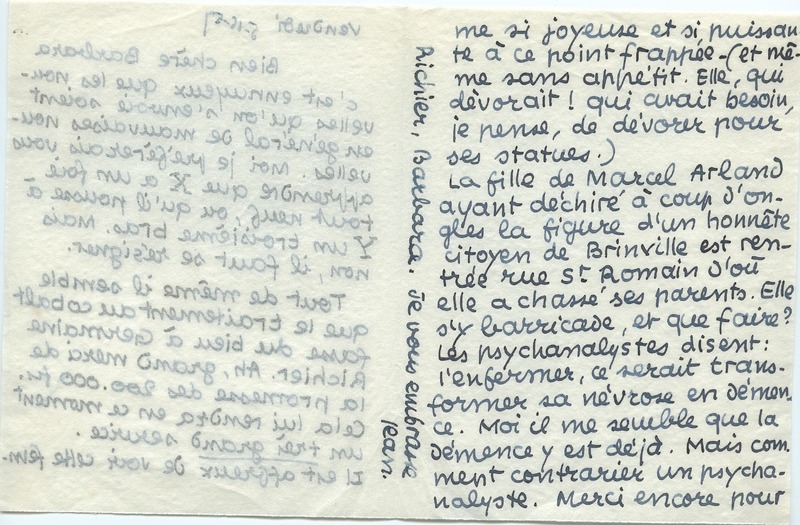 Vendredi
Bien chère Barbara
c'est ennuyeux que les nou-
velles qu'on s'envoie soient
en général de mauvaises nou-
velles. Moi je préférerais vous
apprendre que X a un foie
tout neuf, ou qu'il pousse à
Y un troisième bras. Mais
non, il faut se résigner.
Tout de même il semble
que le traitement au cobalt
fasse du bien à Germaine
Richier. Ah, grand merci de
la promesse des 200.000 frs.
Cela lui rendra en ce moment
un très grand service.
Il est affreux de voir cette fem-
me si joyeuse et si puissan-
te à ce point frappée - (et mê-
me sans appétit. Elle, qui
dévorait ! qui avait besoin,
je pense, de dévorer pour
ses statues.)
La fille de Marcel Arland
ayant déchiré à coup d'on-
gles la figure d'un honnête
citoyen de Brinville est ren-
trée rue St Romain d'où
elle a chassé ses parents. Elle
s'y barricade, et que faire?
Les psychanalystes disent:
l'enfermer, ce serait trans-
former sa névrose en démen-
ce. Moi il me semble que la
démence y est déjà. Mais com-
ment contrarier un psycha-
nalyste. Merci encore pour
Richier, Barbara. Je vous embrasse
Jean.